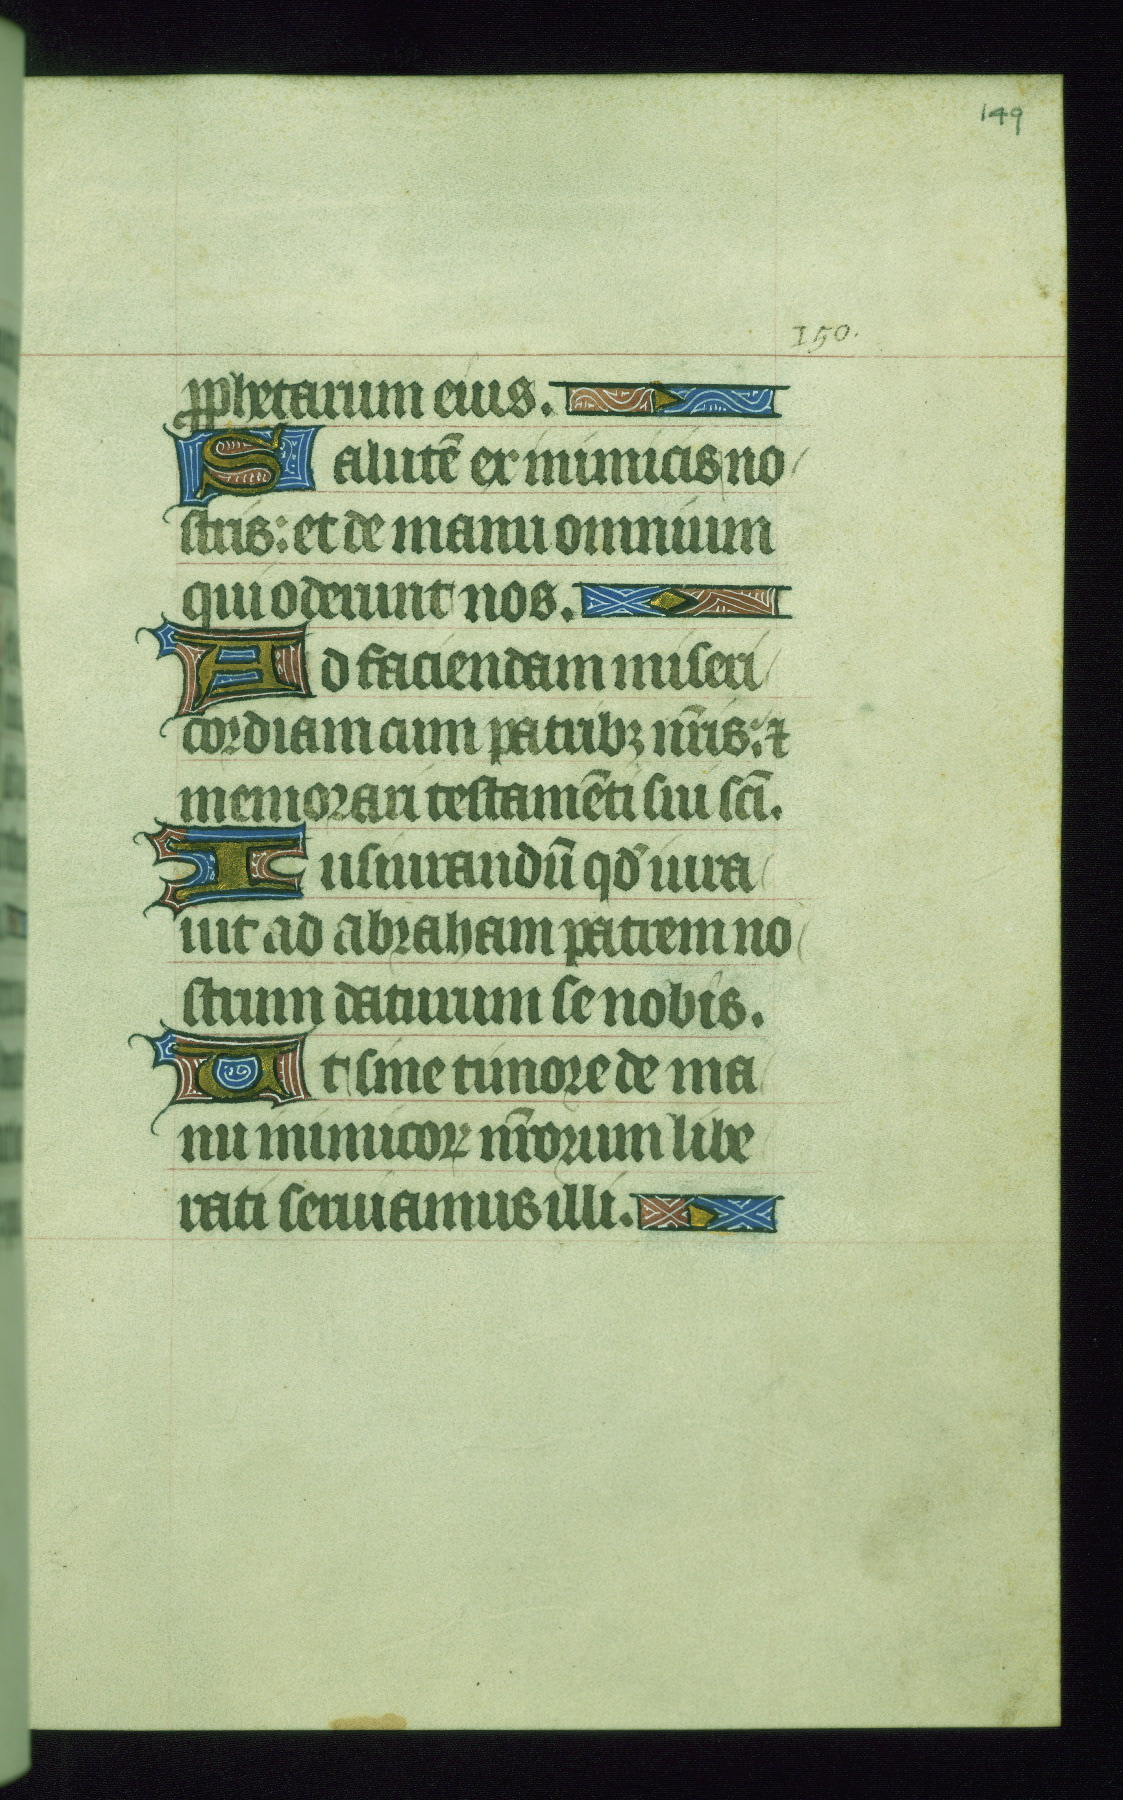 149
150.
ꝓphetarum eius.
Salutē ex inimicis no
stris: et de manu omnium
qui oderunt nos.
Ad faciendam miseri
cordiam cum patribꝫ nr̄is: ⁊
memorari testamēti sui sc̄i.
Iusiurandū qd̓ iura
uit ad abraham patrem no
strum daturum se nobis.
Ut sine timore de ma
nu inimicoꝝ nr̄orum libe
rati seruiamus illi.